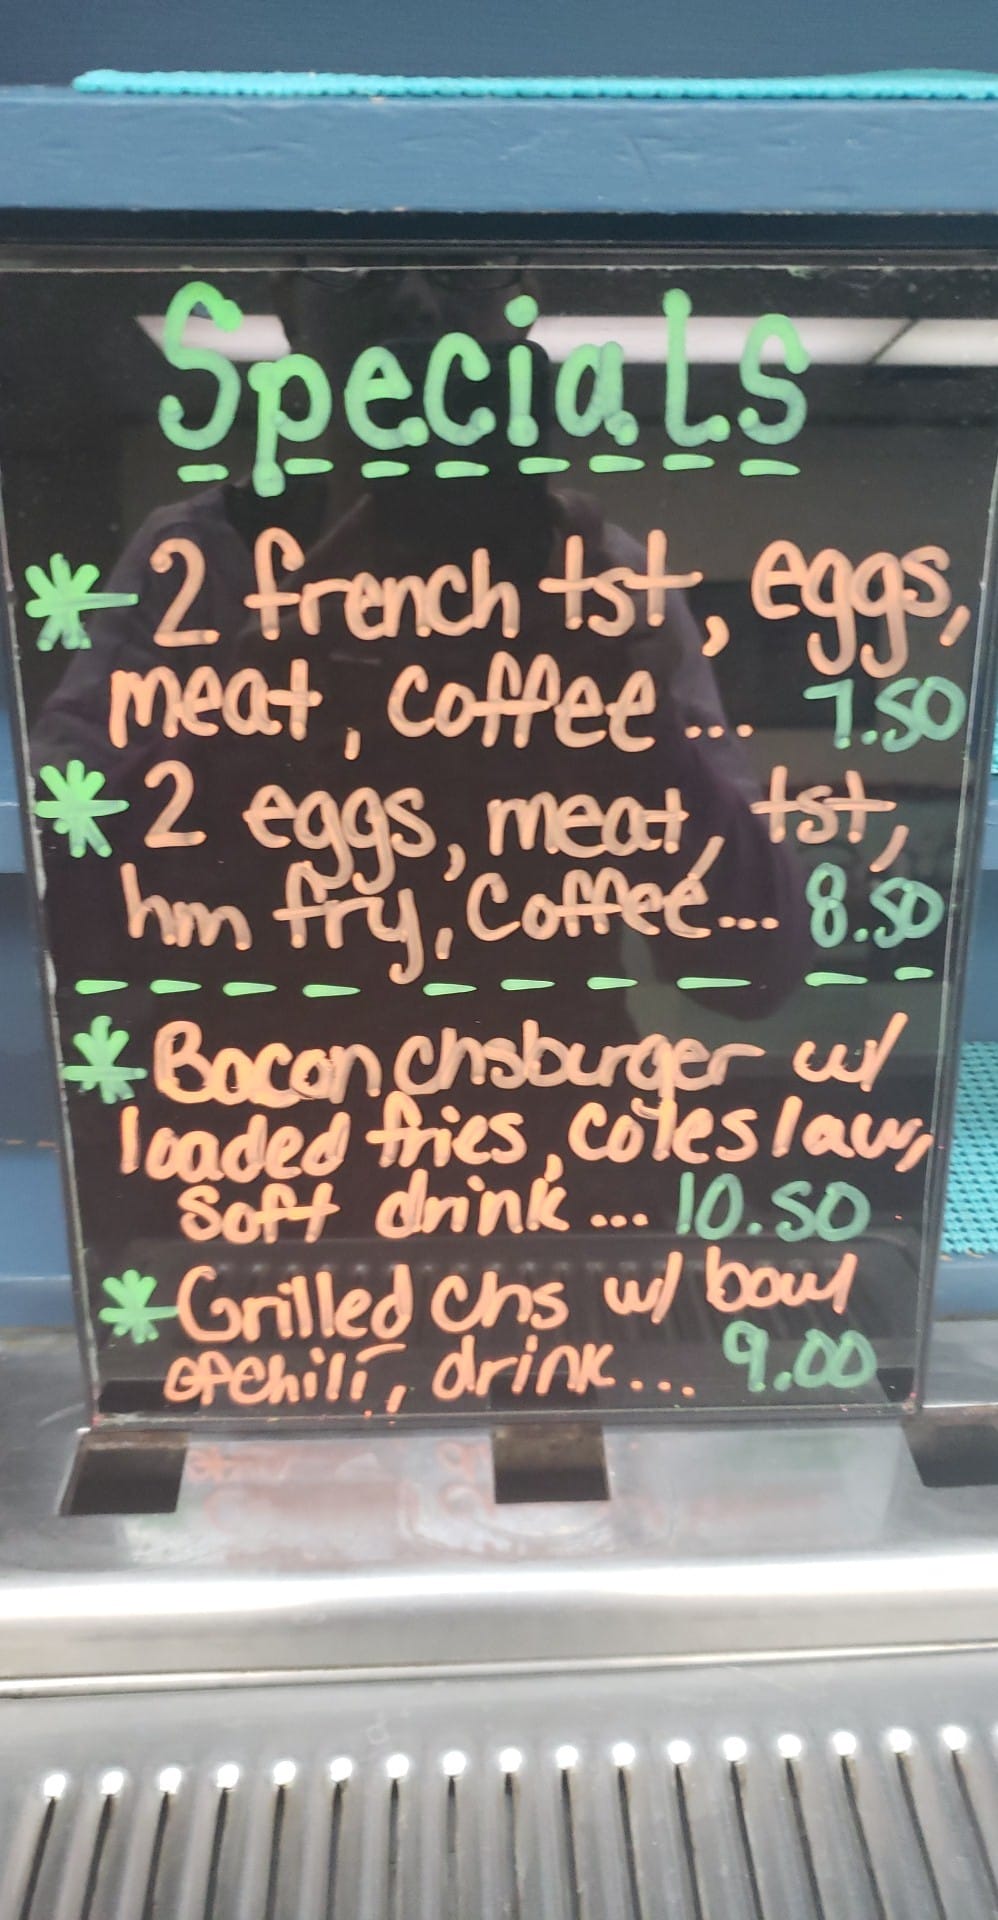 Specials
* 2 french tst, eggs,
meat, coffee... 7.50
* 2 eggs, meat, tst,
hm fry, coffee... 8.50
* Bacon chsburger w/
loaded fries, coleslaw,
soft drink... 10.50
* Grilled chs w/ bowl
of chili, drink... 9.00